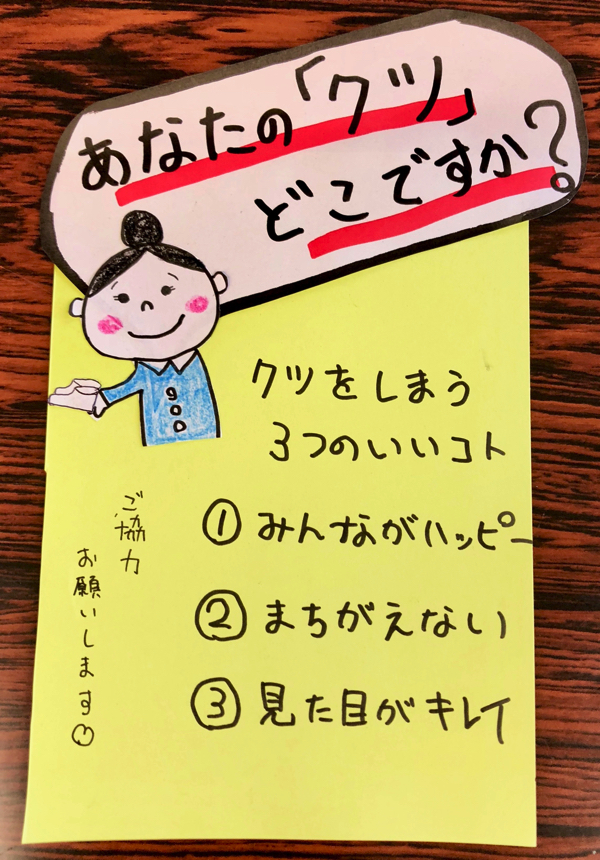 あなたの「クツ」
どこですか?
クツをしまう
3つのいいコト
① みんながハッピー
② まちがえない
③ 見た目がキレイ
ご協力
お願いします